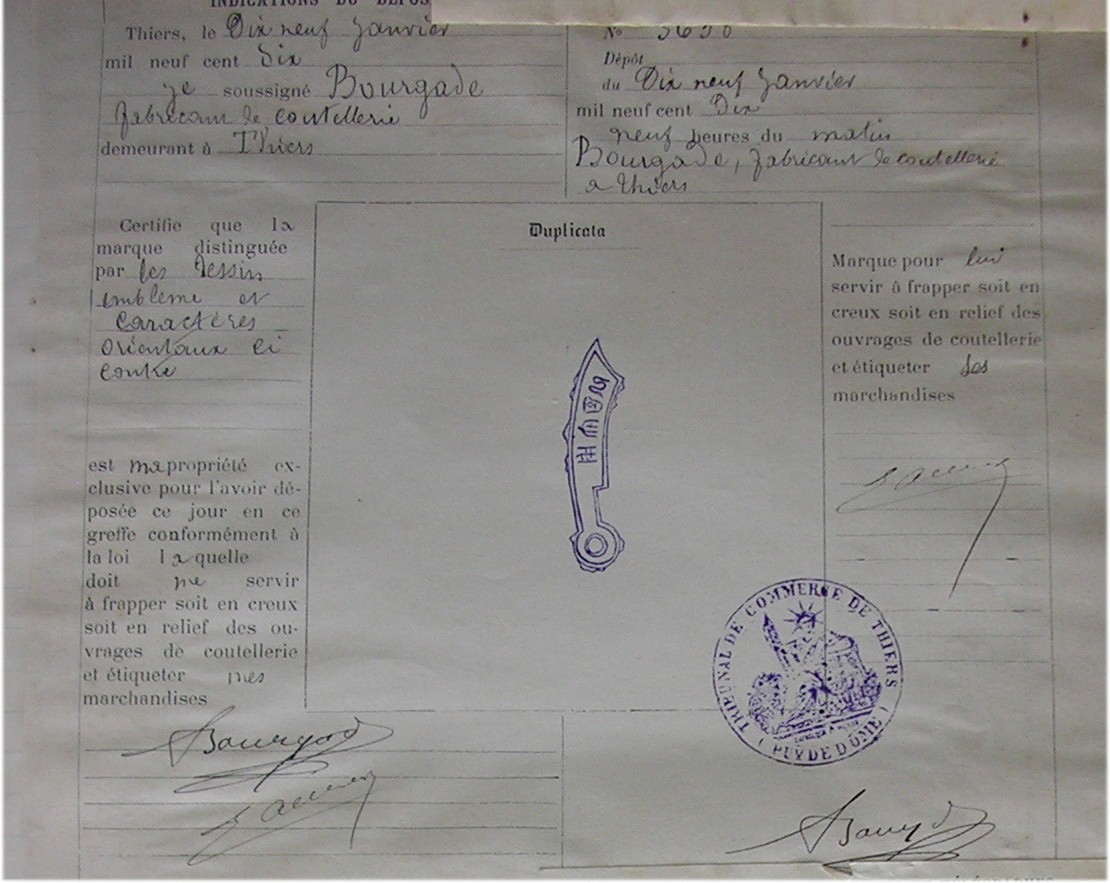 INDICATIONS DU DÉPOS
Thiers, le Dix neuf Janvier
mil neuf cent Dix
je soussigné Bourgade
fabricant de coutellerie
demeurant à Thiers
Certifie que la
marque distinguée
par les dessin
embleme et
caractères
orientaux ci
contre
est ma propriété ex-
clusive pour l'avoir dé-
posée ce jour en ce
greffe conformément à
la loi laquelle
doit me servir
à frapper soit en creux
soit en relief des ou-
vrages de coutellerie
et étiqueter mes
marchandises
Bourgade
Duplicata
TRIBUNAL DE COMMERCE DE THIERS
( PUY DE DÔME )
N°
Dépôt
du Dix neuf Janvier
mil neuf cent Dix
neuf heures du matin
Bourgade, fabricant de coutellerie
a Thiers
Marque pour lui
servir à frapper soit en
creux soit en relief des
ouvrages de coutellerie
et étiqueter ses
marchandises
Bourgade